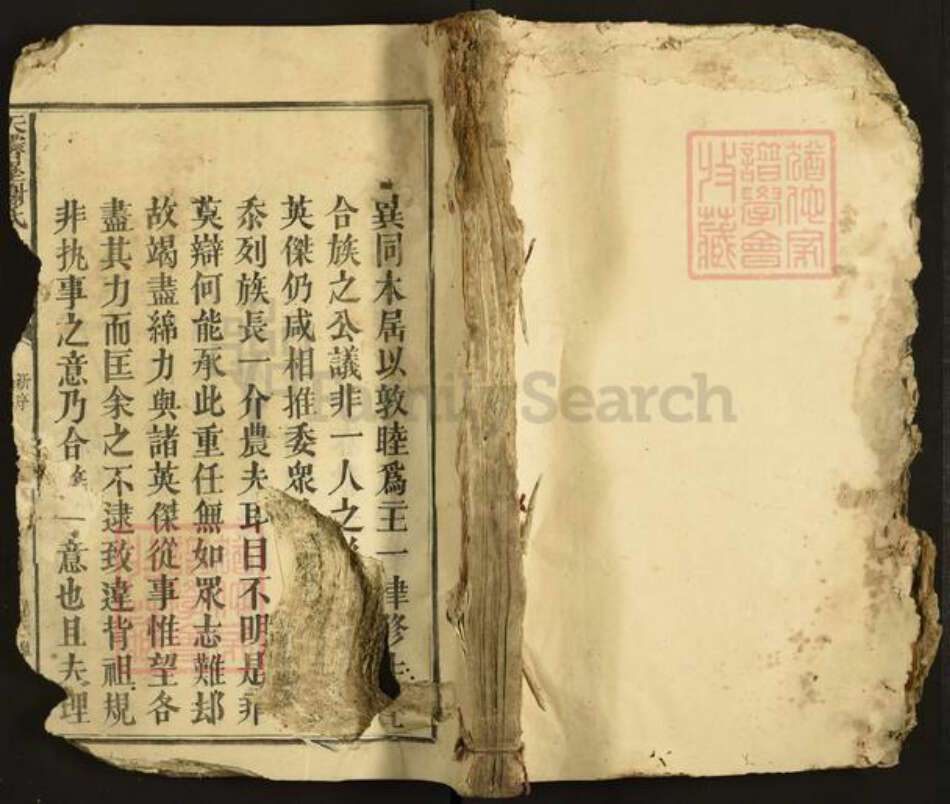 異同木居以敦睦爲主一律修
合族之公議非一人之
英傑仍咸相推委衆
忝列族長一介農夫耳目不明是非
莫辯何能承此重任無如眾志難却
故竭盡綿力與諸英傑從事惟望各
盡其力而匡余之不逮致違背祖規
非執事之意乃合 一意也且夫理
謝氏
新序
猶他家
譜學會
收藏
FamilySearch